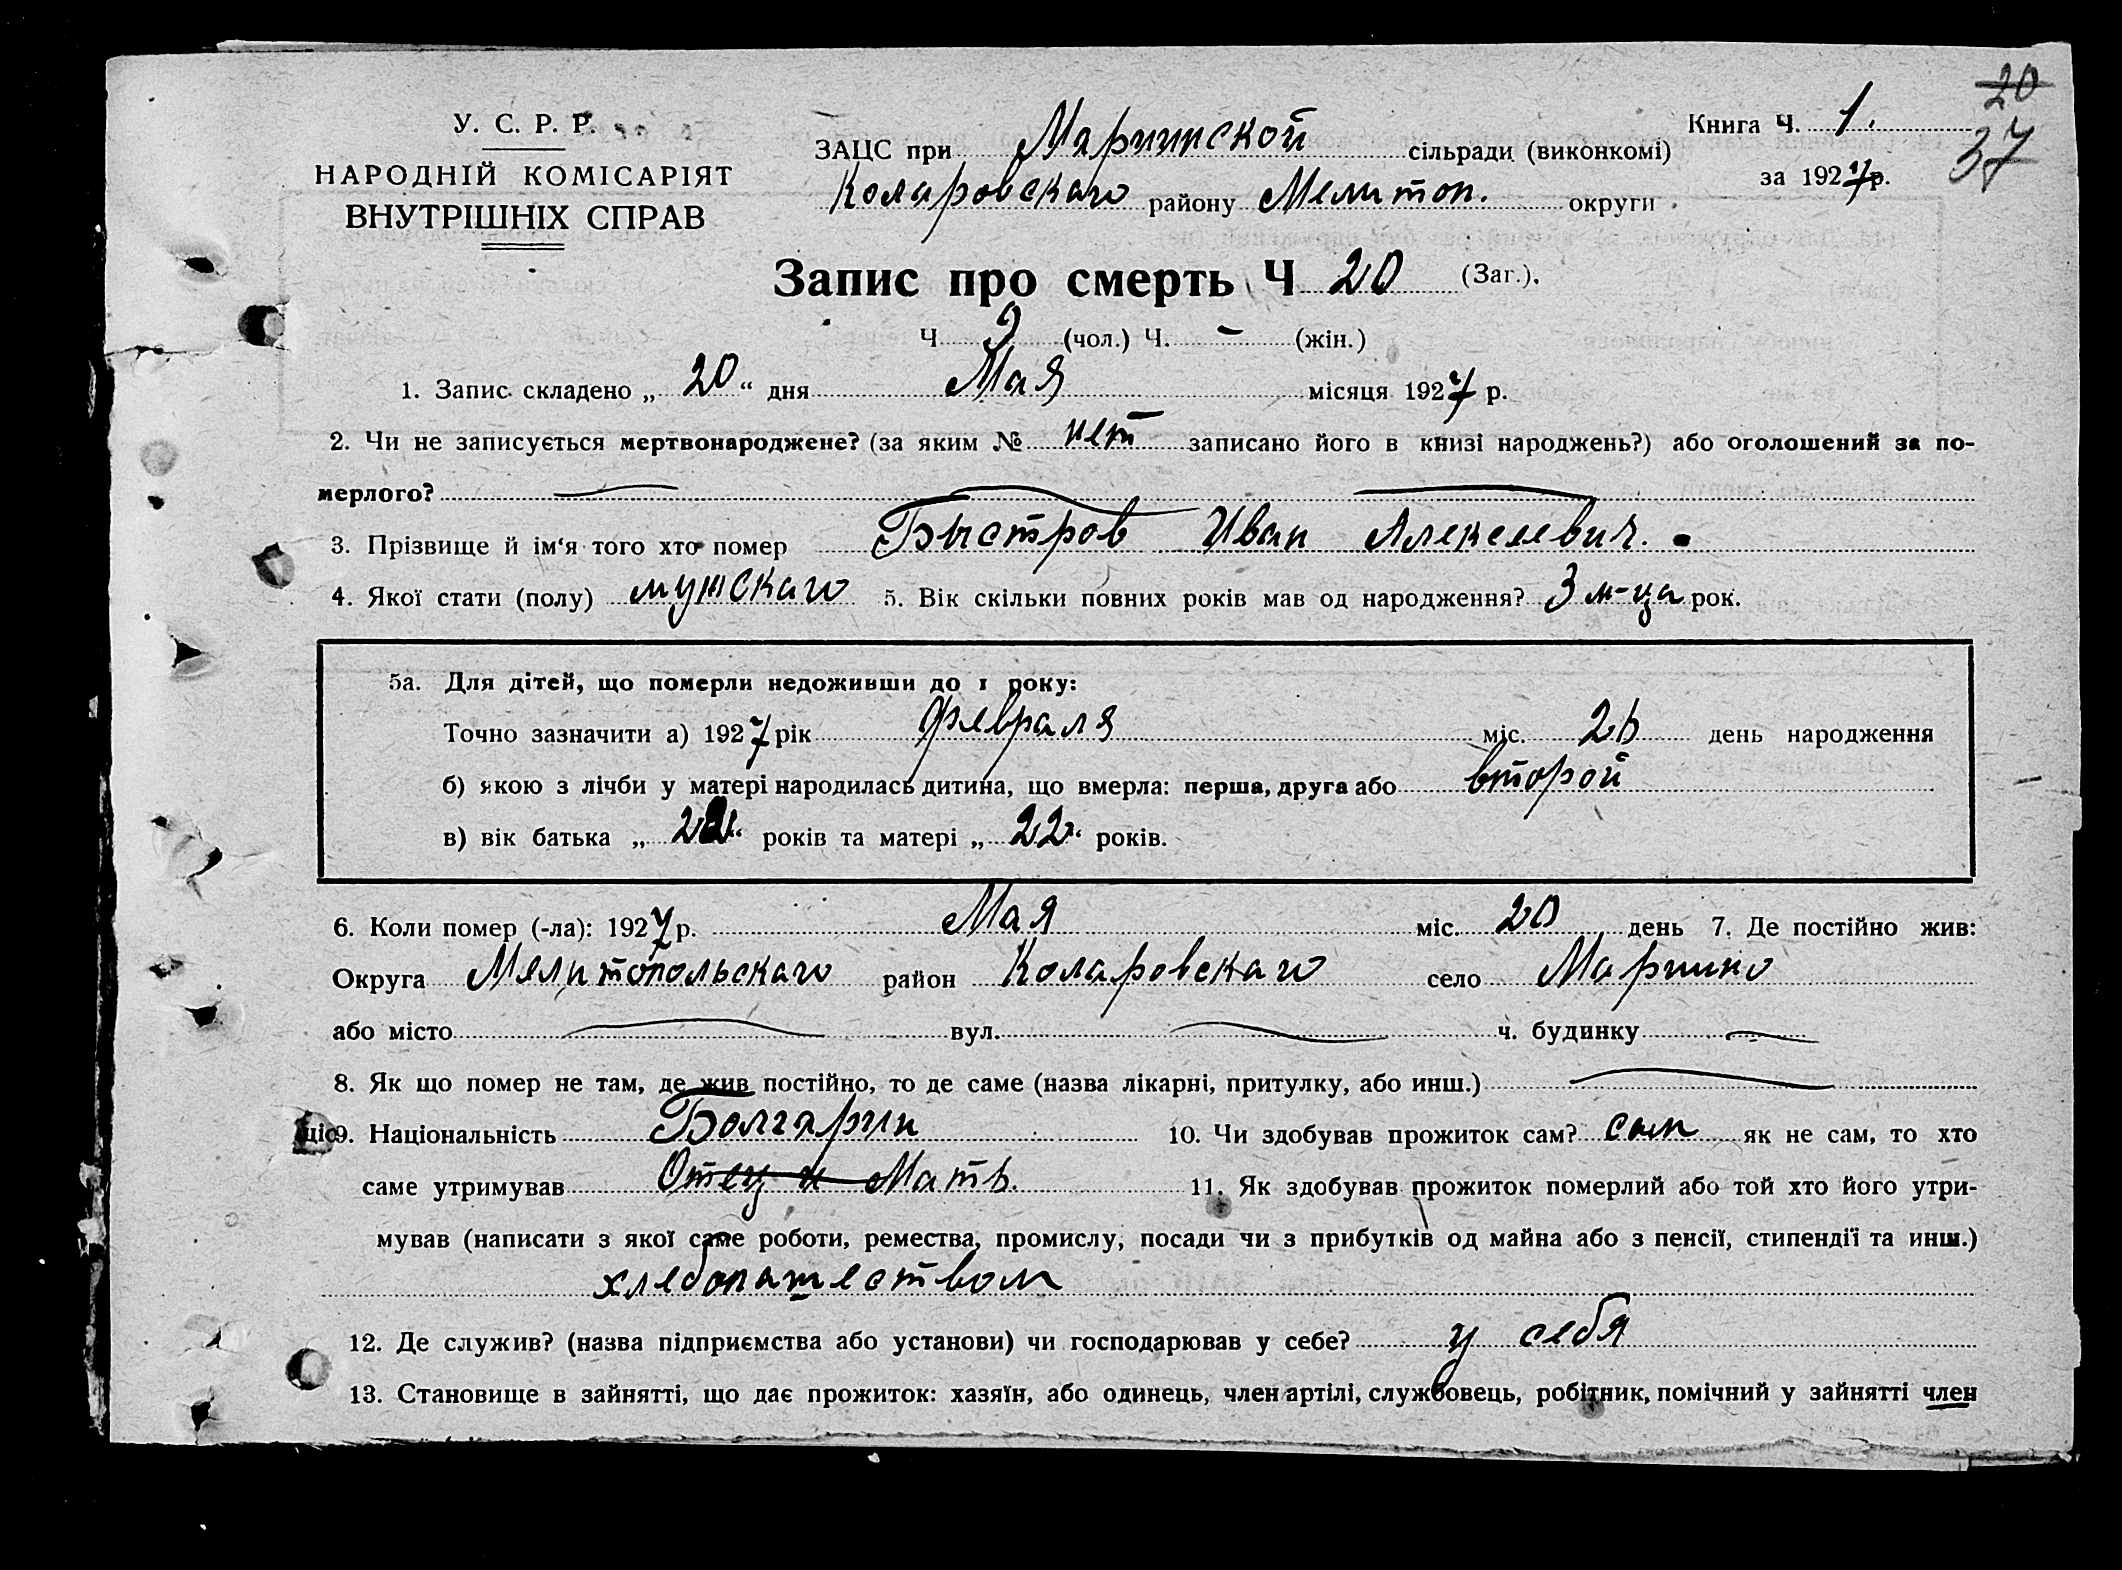 20
37
У. С. Р. Р.
НАРОДНІЙ КОМІСАРІЯТ
ВНУТРІШНІХ СПРАВ
Книга Ч. 1.
за 1927 р.
ЗАЦС при Мариинской сільради (виконкомі)
Коларовскаго району Мелитоп. округи
Запис про смерть Ч 20 (Заг.).
Ч 9 (чол.) Ч. – (жін.)
1. Запис складено „ 20 “ дня Мая місяця 1927 р.
2. Чи не записується мертвонароджене? (за яким № нет записано його в книзі народжень?) або оголошений за по-
мерлого?
3. Прізвище й ім‘я того хто помер Быстров Иван Алексеевич.
4. Якої стати (полу) мужскаго 5. Вік скільки повних років мав од народження? 3 м-ца рок.
5а. Для дітей, що померли недоживши до 1 року:
Точно зазначити а) 1927 рік Февраля міс. день народження
б) якою з лічби у матері народилась дитина, що вмерла: перша, друга або второй
в) вік батька „ 22 “ років та матері „ 22 “ років.
6. Коли помер (-ла): 1927 р. Мая міс. 20 день 7. Де постійно жив:
Округа Мялитопольскаго район Коларовскаго село Мариино
або місто вул. ч. будинку
8. Як що помер не там, де жив постійно, то де саме (назва лікарні, притулку, або инш.)
ціс 9. Національність Болгарин 10. Чи здобував прожиток сам? сам як не сам, то хто
саме утримував Отец и Мать. 11. Як здобував прожиток померлий або той хто його утри-
мував (написати з якої саме роботи, ремества, промислу, посади чи з прибутків од майна або з пенсії, стипендії та инш.)
хлебопашеством
12. Де служив? (назва підприємства або установи) чи господарював у себе? у себя
13. Становище в зайнятті, що дає прожиток: хазяїн, або одинець, член артілі, службовець, робітник, помічний у зайнятті член